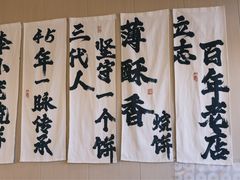 45年一脉传承
三代人
坚守一个饼
薄酥香
烧饼
立志
百年老店